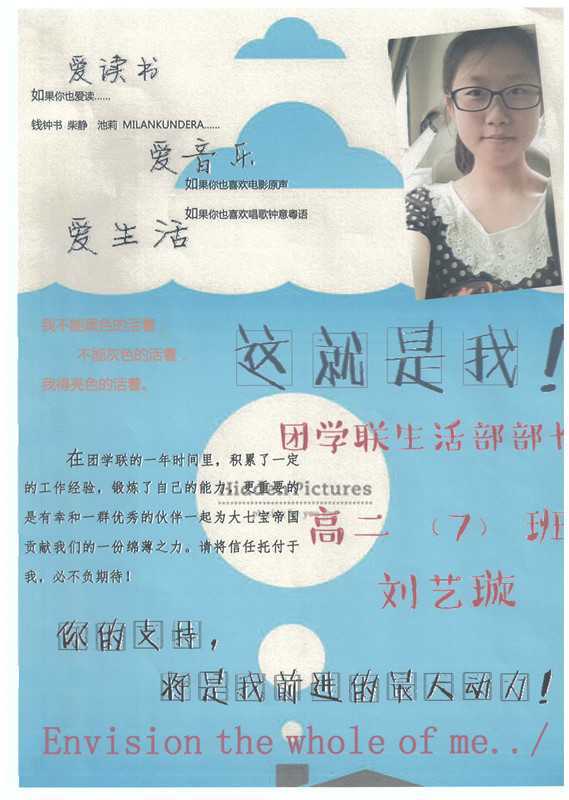 爱读书
如果你也爱读......
钱钟书 柴静 池莉 MILANKUNDERA......
爱音乐
如果你也喜欢电影原声
如果你也喜欢唱歌钟意粤语
爱生活
我不能黑色的活着，
不能灰色的活着，
我得亮色的活着。
这就是我！
团学联生活部部长
在团学联的一年时间里，积累了一定
的工作经验，锻炼了自己的能力。更重要的
是有幸和一群优秀的伙伴一起为大七宝帝国
贡献我们的一份绵薄之力。请将信任托付于
我，必不负期待！
Hidden Pictures
高二（7）班
刘艺璇
你的支持，
将是我前进的最大动力！
Envision the whole of me../